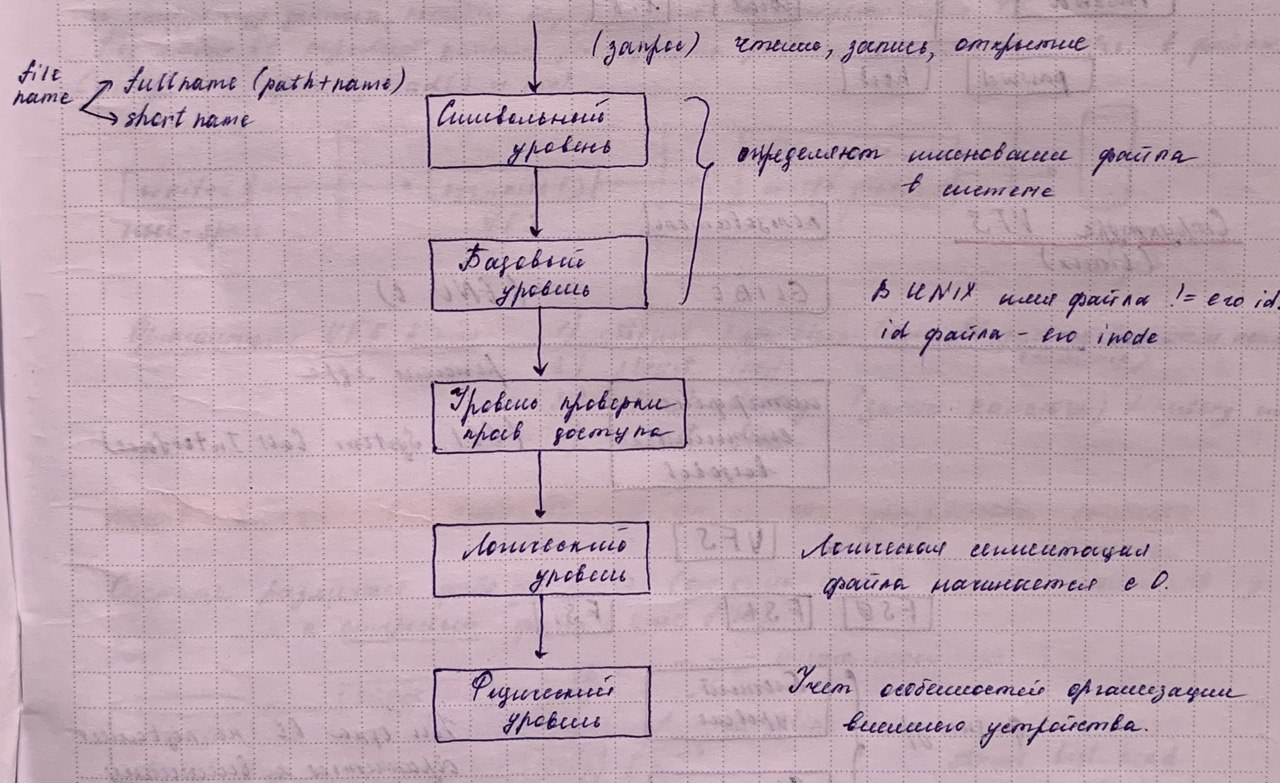 (запрос) чтение, запись, открытие
file name
fullname (path+name)
short name
Символьный
уровень
определяют именование файла
в системе
Базовый
уровень
В UNIX имя файла != его id.
id файла - его inode
Уровень проверки
прав доступа
Логический
уровень
Логическая сегментация
файла начинается с 0.
Физический
уровень
Учет особенностей организации
внешнего устройства.